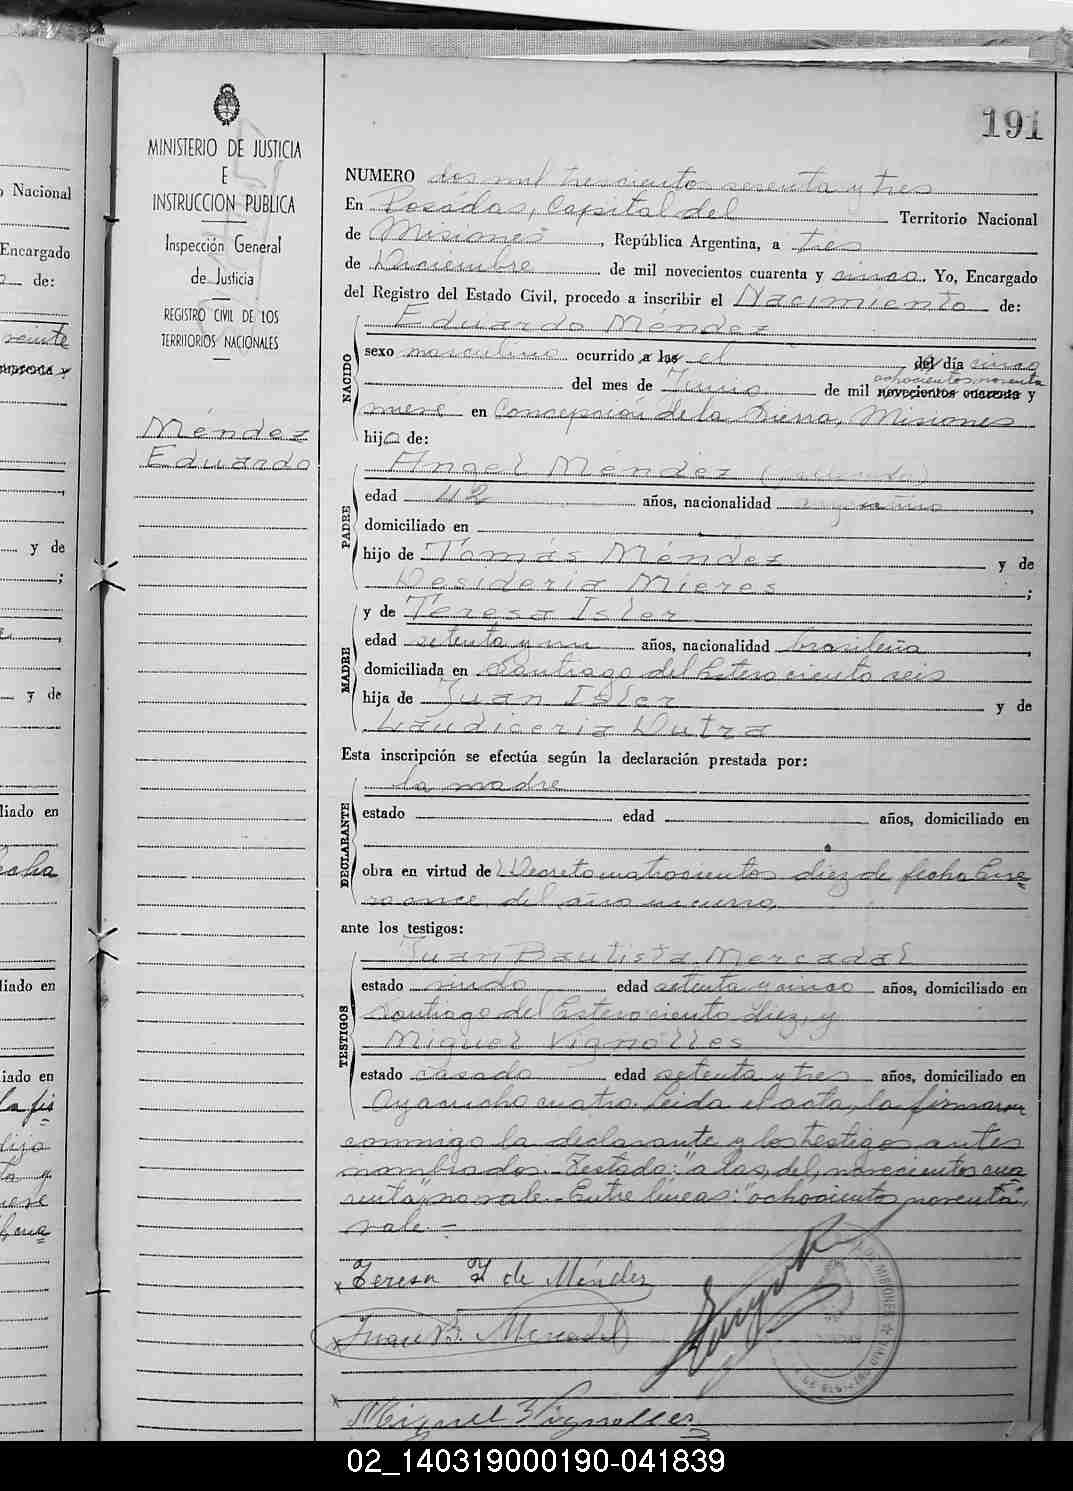 191
MINISTERIO DE JUSTICIA
E
INSTRUCCION PUBLICA
Inspección General
de Justicia
REGISTRO CIVIL DE LOS
TERRITORIOS NACIONALES
Méndez
Eduardo
NUMERO dos mil trescientos sesenta y tres
En Posadas, Capital del Territorio Nacional
de Misiones, República Argentina, a tres
de Diciembre de mil novecientos cuarenta y cinco. Yo, Encargado
del Registro del Estado Civil, procedo a inscribir el Nacimiento de:
NACIDO
Eduardo Méndez
sexo masculino ocurrido a las el del día cinco
ochocientos noventa
del mes de Junio de mil novecientos cuarenta y
nueve en Concepción de la Sierra, Misiones
hijo de:
PADRE
Angel Méndez
edad 42 años, nacionalidad argentino
domiciliado en
hijo de Tomás Méndez y de
Desideria Mieres;
MADRE
y de Teresa Isler
edad setenta y un años, nacionalidad brasileña
domiciliada en Santiago del Estero ciento seis
hija de Juan Isler y de
Laudiceria Dutra
Esta inscripción se efectúa según la declaración prestada por:
DECLARANTE
la madre
estado edad años, domiciliado en
obra en virtud de Decreto cuatrocientos diez de fecha Ene=
ro once del año en curso,
ante los testigos:
TESTIGOS
Juan Bautista Mercadal
estado viudo edad setenta y cinco años, domiciliado en
Santiago del Estero ciento diez, y
Miguel Vignolles
estado casado edad setenta y tres años, domiciliado en
Ayacucho cuatro. Leida el acta, la firmaron
conmigo la declarante y los testigos antes
nombrados.- Testado: "a las, del, novecientos cua
renta", no vale.- Entre líneas: "ochocientos noventa",
vale.-
Teresa Y de Méndez
Juan B. Mercadal
Miguel Vignolles
02_140319000190-041839